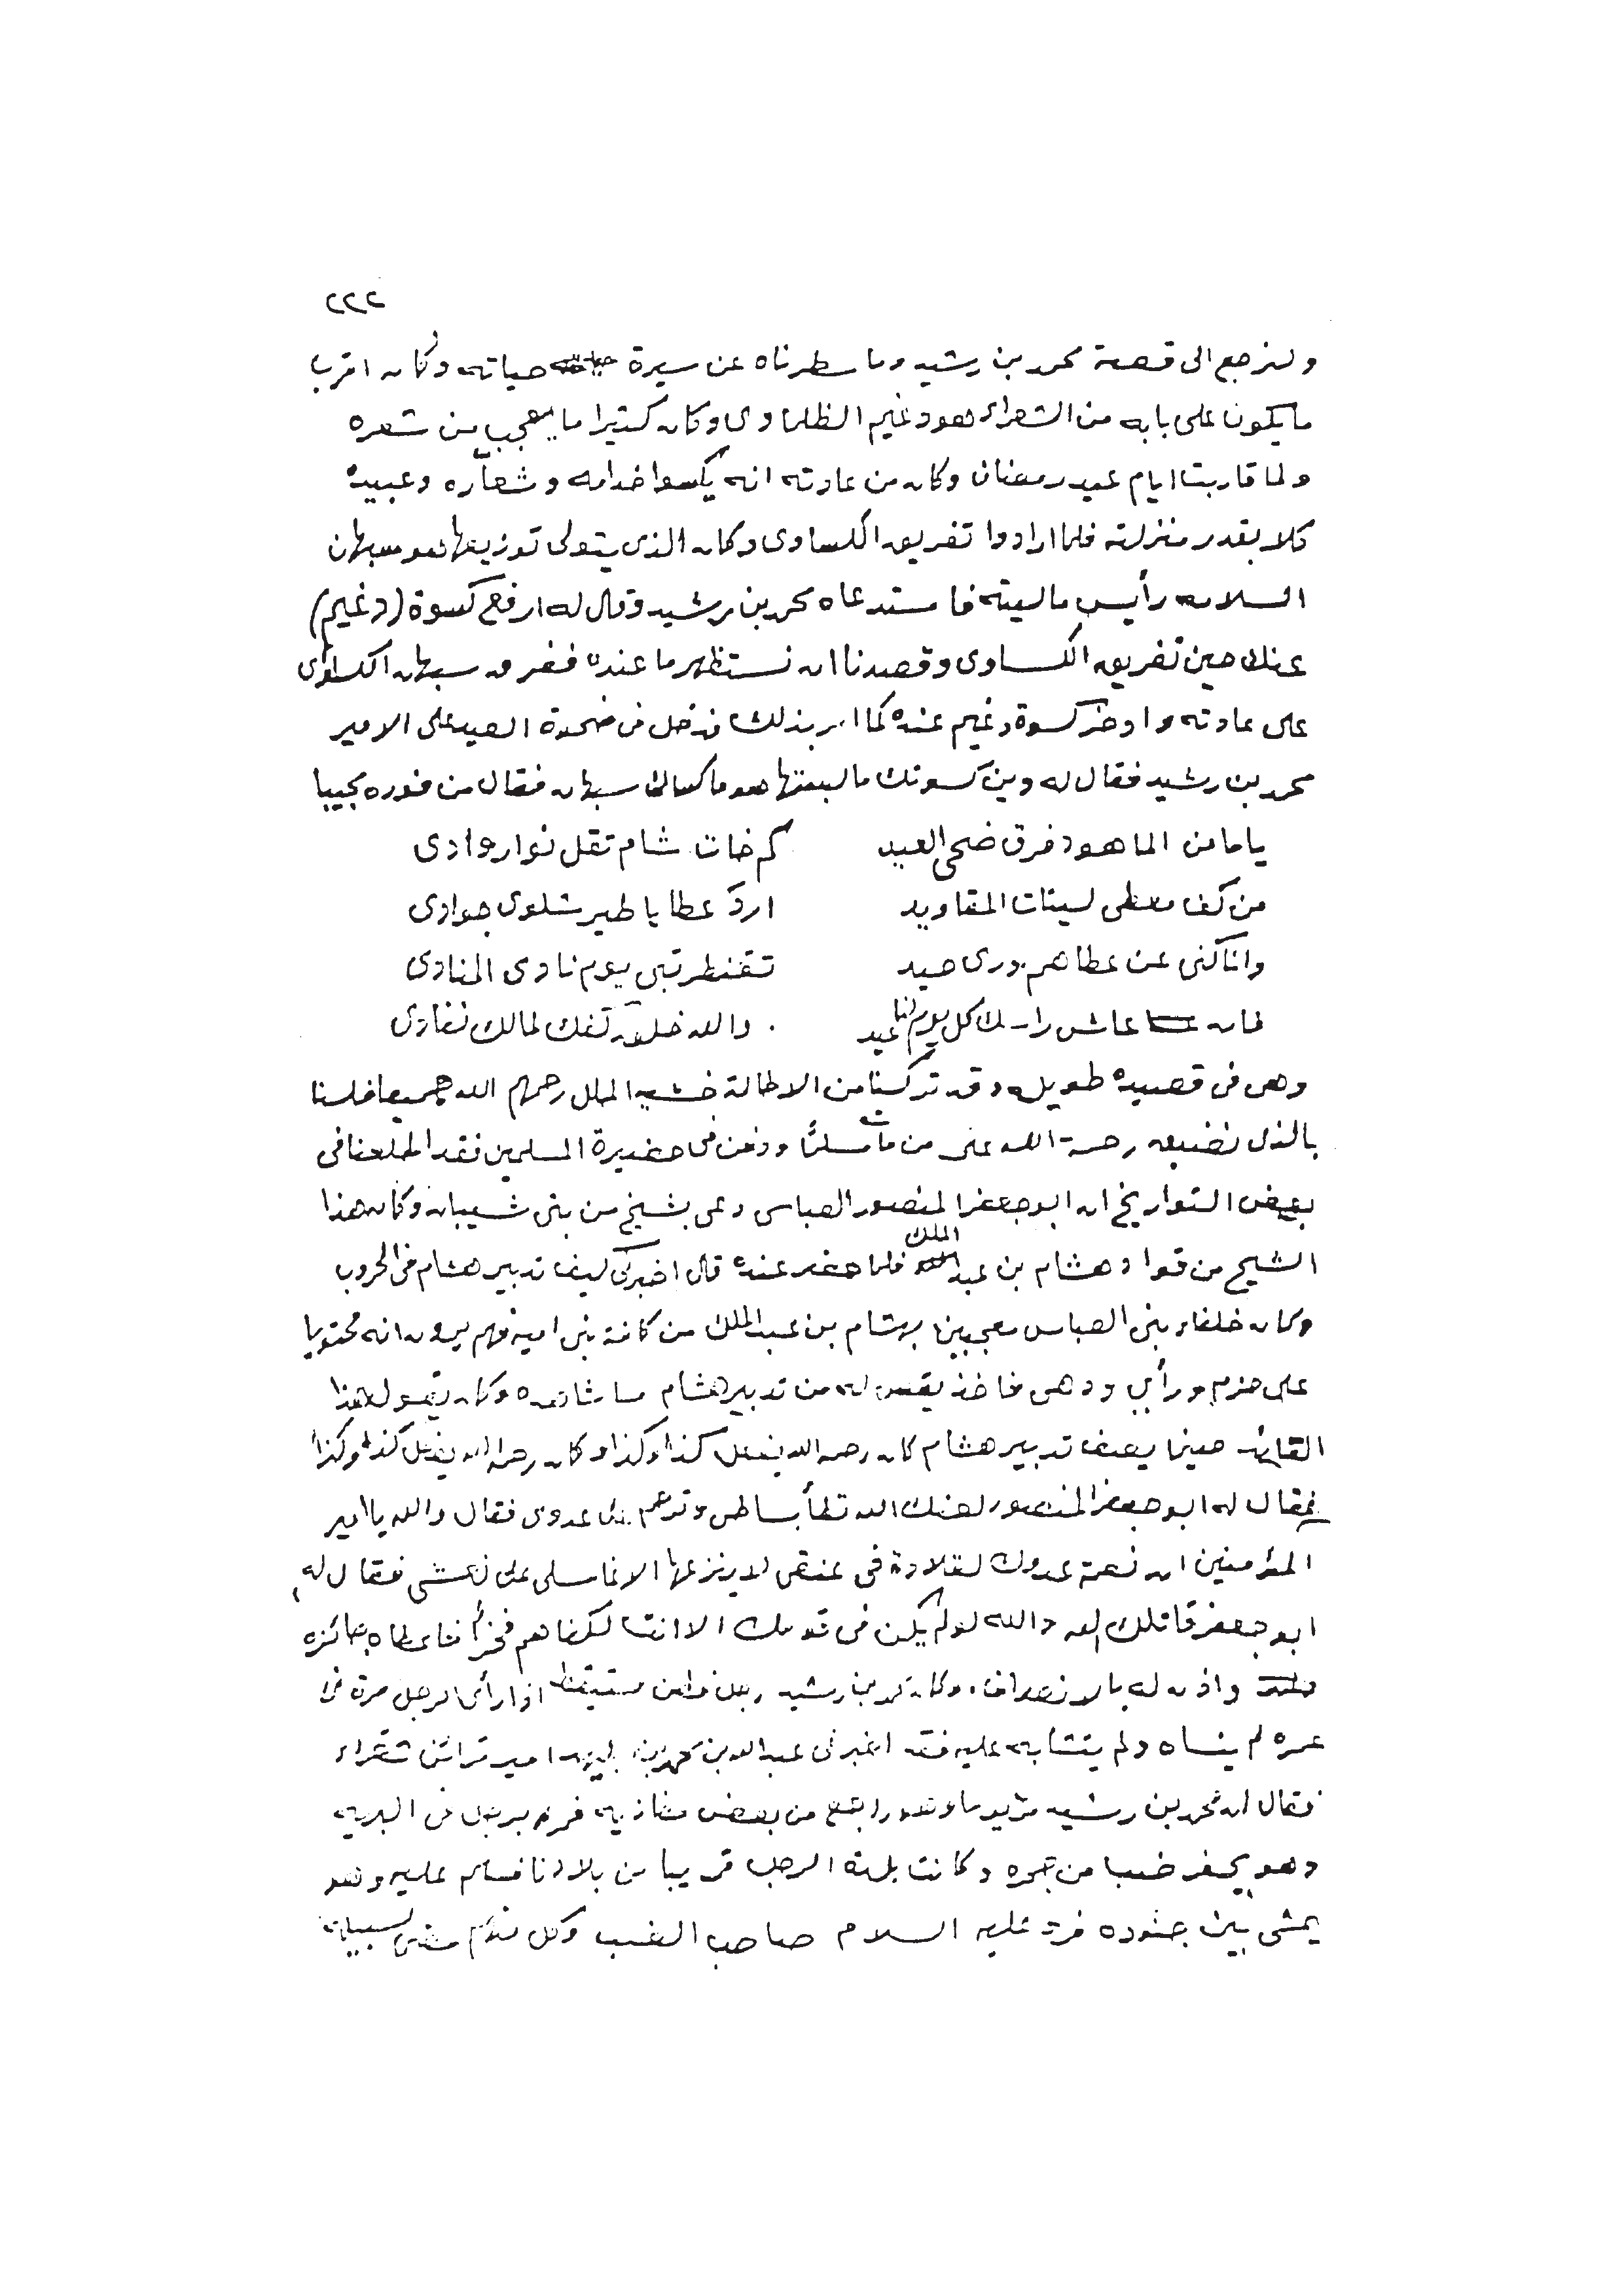 ٢٢٢
ولنرجع الى قصة محمد بن رشيد وما سطرناه عن سيرة حياته وكان اقرب
ما يكون على بابه من الشعراء هو دغيم الظلماوى وكان كثيرا ما يعجب من شعره
ولما قاربت ايام عيد رمضان وكان من عادته انه يكسوا خدامه وشعاره وعبيده
كلا بقدر منزلته فلما ارادوا تفريق الكساوى وكان الذى يتولى توزيعها هو سبهان
السلامه رأيس ماليته فاستدعاه محمد بن رشيد وقال له ارفع كسوة (دغيم)
عنك حين تفريق الكساوى وقصدنا ان نستظهر ما عنده ففرق سبهان الكساوى
على عادته واوخر كسوة دغيم عنده كما امر بذلك فدخل فى ضحوة العيد على الامير
محمد بن رشيد فقال له وين كسوتك ما لبستها هو ما كساك سبهان فقال من فوره مجيبا
ياما من الماهود فرق ضحى العيد كم خات شام تقل نوار وادى
من كف معطى لسينات المقاويد اردى عطايا طير شلوى جوادى
وانا كنى عن عطاهم بورى حيد تقنطر تبى يوم نادى المنادى
فان عاش راسك كل يوم لنا عيد والله خلاق تفك لمالك نفادى
وهى فى قصيده طويله وقد تركنا من الاطالة خشية الملل رحمهم الله جميعا فلسنا
بالذى نضيق رحمة الله على من مات مسلمًا ودفن فى حفيرة المسلمين فقد اطلعنا فى
بعض التواريخ ان ابو جعفر المنصور العباسى دعى بشيخ من بنى شيبان وكان هذا
الشيخ من قواد هشام بن عبد الملك فلما حضر عنده قال اخبرنى كيف تدبير هشام فى الحروب
وكان خلفاء بنى العباس معجبين بهشام بن عبد الملك من كافة بنى اميه فهم يرون انه محتويا
على حزم ورأي ودهى فاخذ يقص له من تدبير هشام ما شاهده وكان يقول هذا
القائد حينما يصف تدبير هشام كان رحمه الله يفعل كذا وكذا وكان رحمه الله يفعل كذا وكذا
فقال له ابو جعفر المنصور لعنك الله تطأ بساطى وترحم على عدوى فقال والله يا امير
المؤمنين ان نعمة عدوك لقلادة فى عنقى لا ينزعها الا غاسلى على نعشى فقال له
ابو جعفر قاتلك الله والله لو لم يكن فى قومك الا انت لكفاهم فخرأ فاعطاه جائزه
واذن له بالانصراف. وكان محمد بن رشيد رجل فطن مستيقظ اذا رأى الرجل مرة فى
عمره لم ينساه ولم يتشابه عليه فقد اخبرنى عبد الله بن محمد امير شقراء
فقال ان محمد بن رشيد مر وهو راجع من بعض مغازيه فمر برجل فى البريه
وهو يحفر ضبا من جحره وكانت بلدة الرجل قريبا من بلادنا فسلم عليه وهو
يمشى بين جنوده فرد عليه السلام صاحب الضب وكل منهم مشى